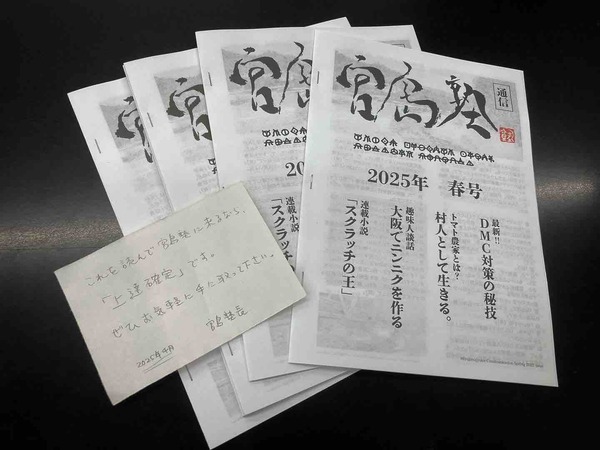 宮島塾
通信
2025年 春号
最新!!
DMC対策の秘技
トマト農家とは?
村人として生きる。
趣味人談話
大阪でニンニクを作る
連載小説
「スクラッチの王」
宮島塾
20
連載小説
「スクラッチの
これを読んで宮島塾に来るなら、
「上達確定」です。
ぜひお気軽に手に取って下さい。
宮島塾長
2025年4月